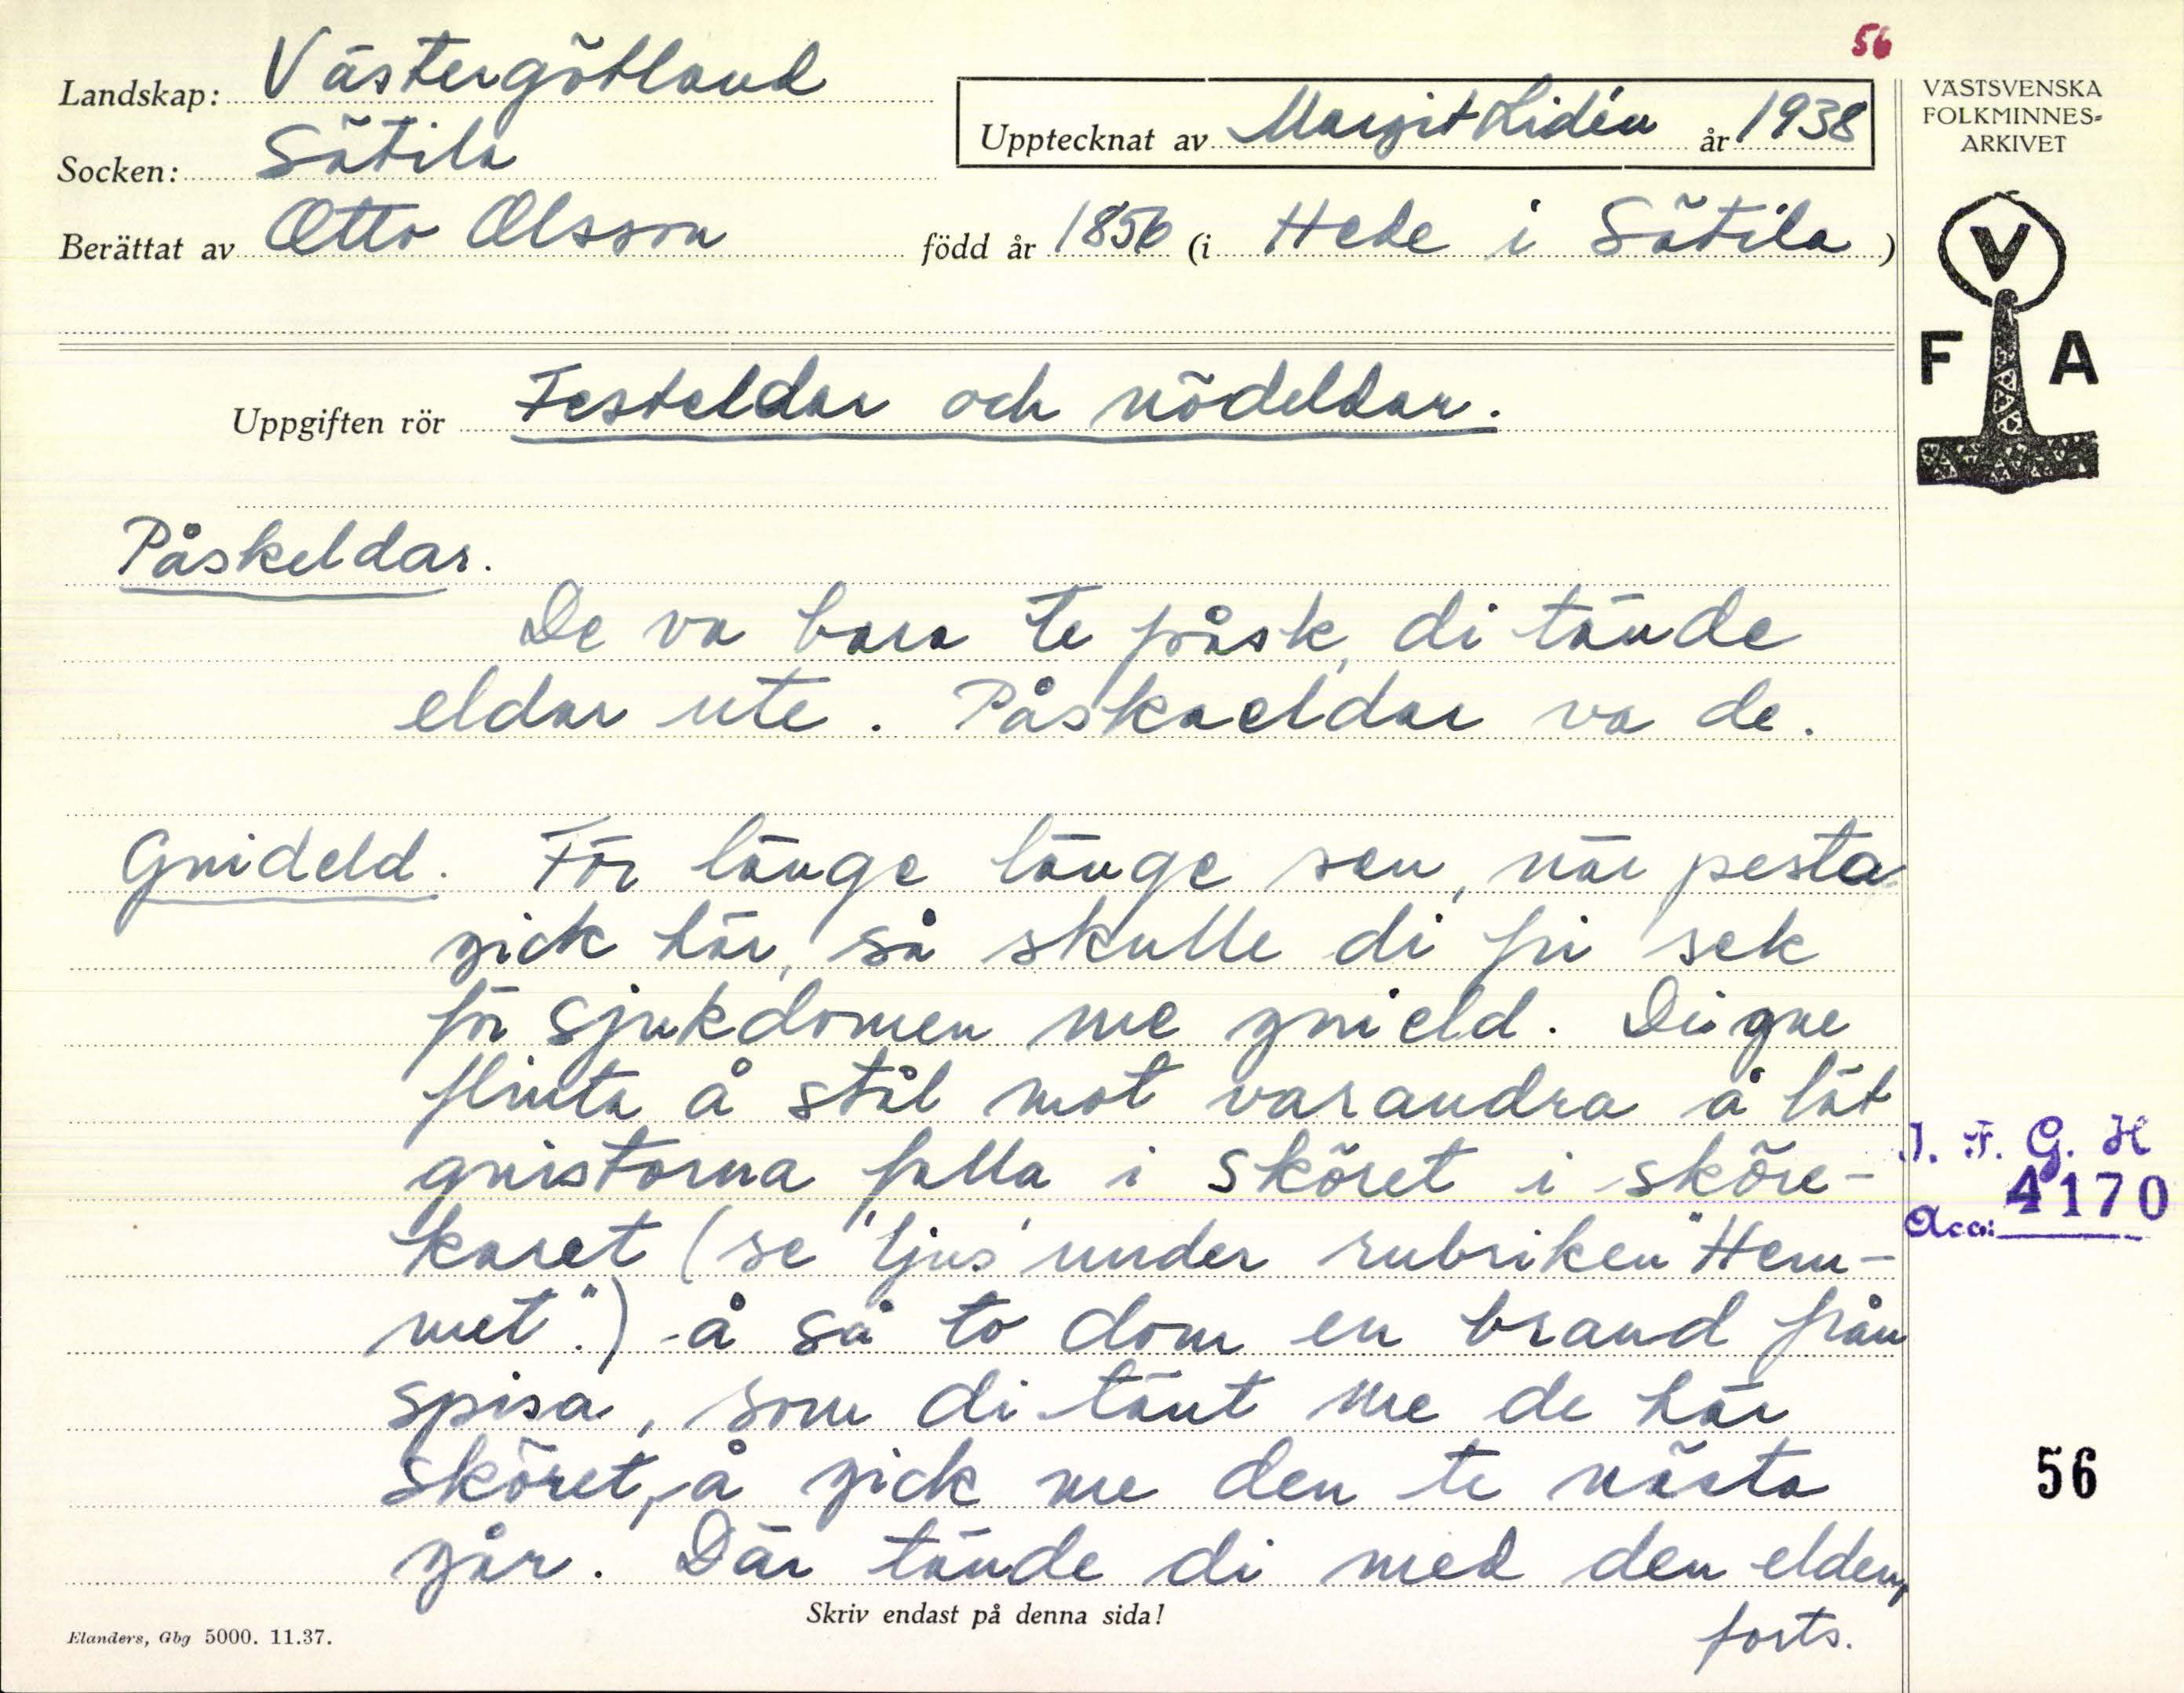 56
Landskap: Västergötland
Socken: Sätila
Berättat av Otto Olsson född år 1856 (i Hede i Sätila)
Upptecknat av Margit Lidén år 1938
VÄSTSVENSKA
FOLKMINNES-
ARKIVET
V
F A
Uppgiften rör Festeldar och nödeldar.
Påskeldar.
De va bara te påsk, di tände
eldar ute. Påskaeldar va de.
Gnideld. För länge länge sen, när pesta
gick här, så skulle di fri sek
för sjukdomen me gnield. Di gne
flinta å stål mot varandra å lät
gnistorna falla i sköret i sköre-
karet (se 'ljus' under rubriken "Hem-
met".) å så to dom en brand från
spisa, som di tänt me de här
sköret, å gick me den te nästa
går. Där tände di med den elden,
forts.
J. F. G. H
Acc: 4170
56
Skriv endast på denna sida!
Elanders, Gbg 5000. 11.37.